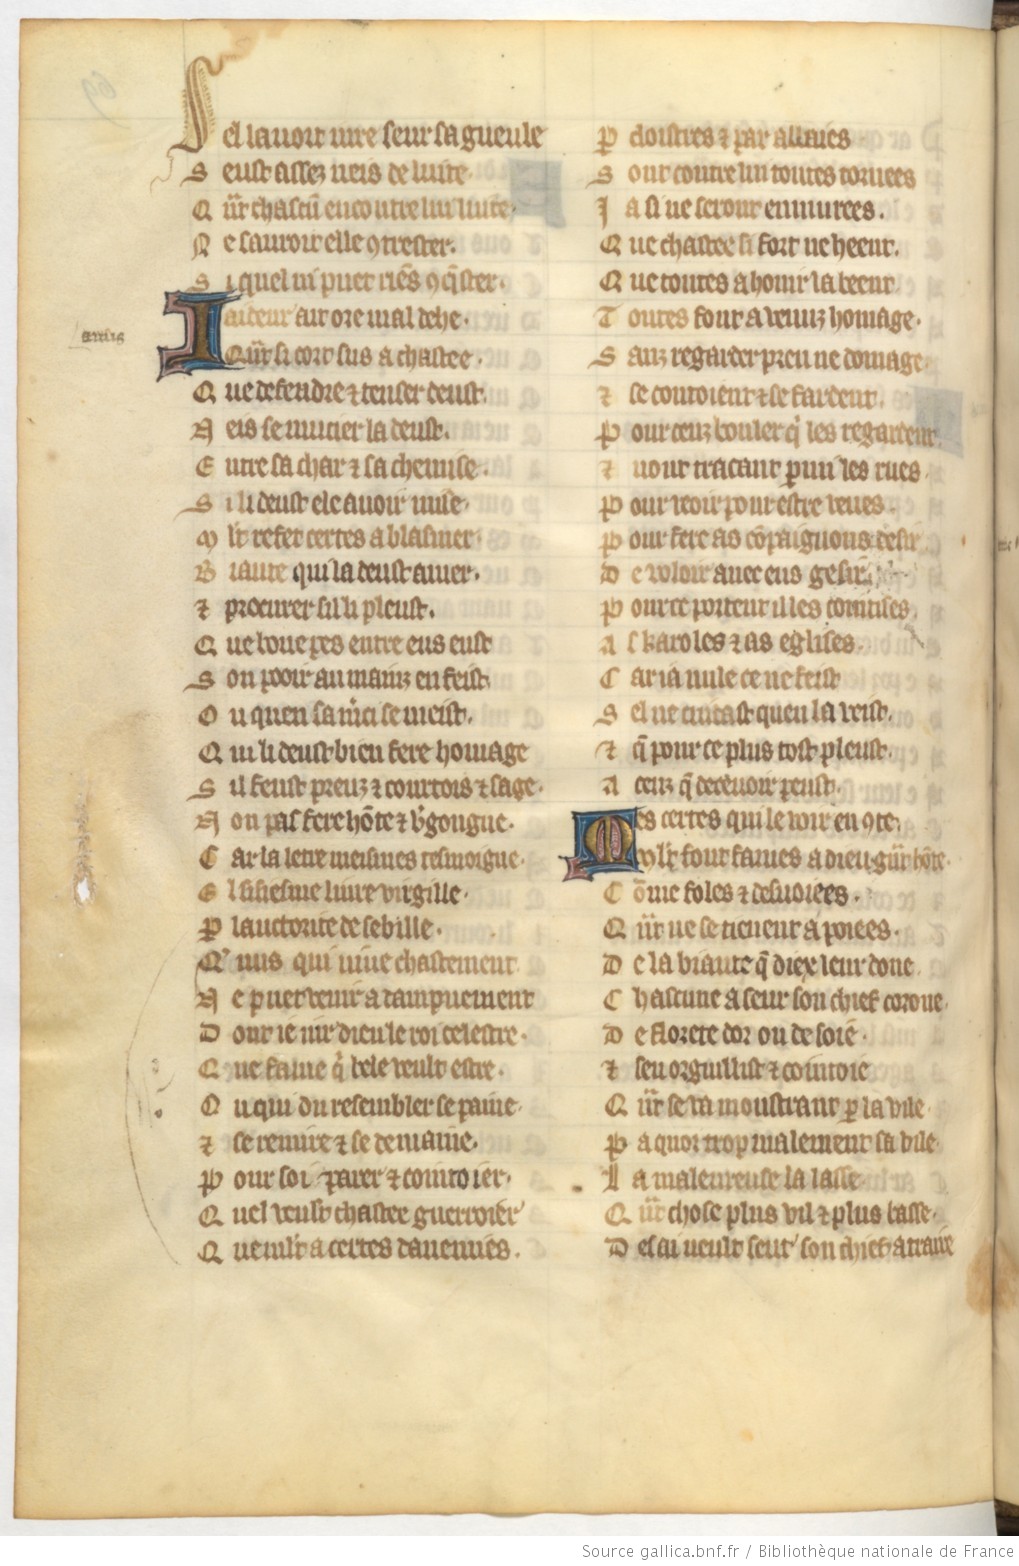 S el lavoit mise seur sa gueule
S eust assez neis de luite
Q ūt chascū encontre lui luite
N e savroit elle ꝯtrester.
S i quel ni puet riēs ꝯq̄ster.
Laideur
Qūt si cort sus a chastee.
Q ue defendre ⁊ tenser deust.
N eis se nuicier la deust.
E ntre sa char ⁊ sa chemise.
S i li deust ele avoir mise.
M lt refet certes a blasmer
B iaute qui la deust amer.
⁊ procurer sil li pleust.
Q ue bone pes entre eus eust
S on pooir au mainz en feist
O u quen sa m̄ci se meist.
Q ui li deust bien fere homage
S il feust preuz ⁊ courtois ⁊ sage.
N on pas fere hōte ⁊ v̄gongne.
C ar la letre meismes tesmoigne
E l sisiesme livre virgille.
P lauctorite de sebille.
Q' nus qui vive chastement
N e puet venir a dampnement
D ont ie iur dieu le roi celestre.
Q ue fame q̄ bele veult estre.
O u qui du resembler se paine.
⁊ se remire ⁊ se demaine.
P our soi parer ⁊ cointoier.
Q uel veust chastee guerroier
Q ue mlt a certes danemies.
P cloistres ⁊ par abbaies
S ont contre lui toutes tornees
J a si ne seront enmurees.
Q ue chastee si fort ne heent.
Q ue toutes a honir la beent.
T outes font a venuz homage.
S anz regarder preu ne domage
⁊ se cointoient ⁊ se fardent.
P our ceuz bouler q̄ les regardent
⁊ vont tracant p̄mi les rues.
P our veoir pour estre veues.
P our fere as cōpaignons desir
D e voloir avec eus gesir.
P our ce portent illes cointises
A s karoles ⁊ as eglises.
C ar ia nule ce ne feist
S el ne cuidast quen la veist.
⁊ q̄ pour ce plus tost pleust.
A ceuz q̄ decevoir peust.
Mes certes qui le voir en ꝯte.
Mlt font fames a dieu grāt hōte.
C ōme foles ⁊ desvoiees.
Q ūt ne se tienent a poiees.
D e la biaute q̄ diex leur done
C hascune a seur son chief corone
D e florete dor ou de soie
⁊ sen orguillist ⁊ cointoie
Q ūt se va moustrant p̄ la vile
P a quoi trop malement sa vile
L a maleureuse la lasse
Q ūt chose plus vil ⁊ plus basse.
D e lui veult seur son chief atraire